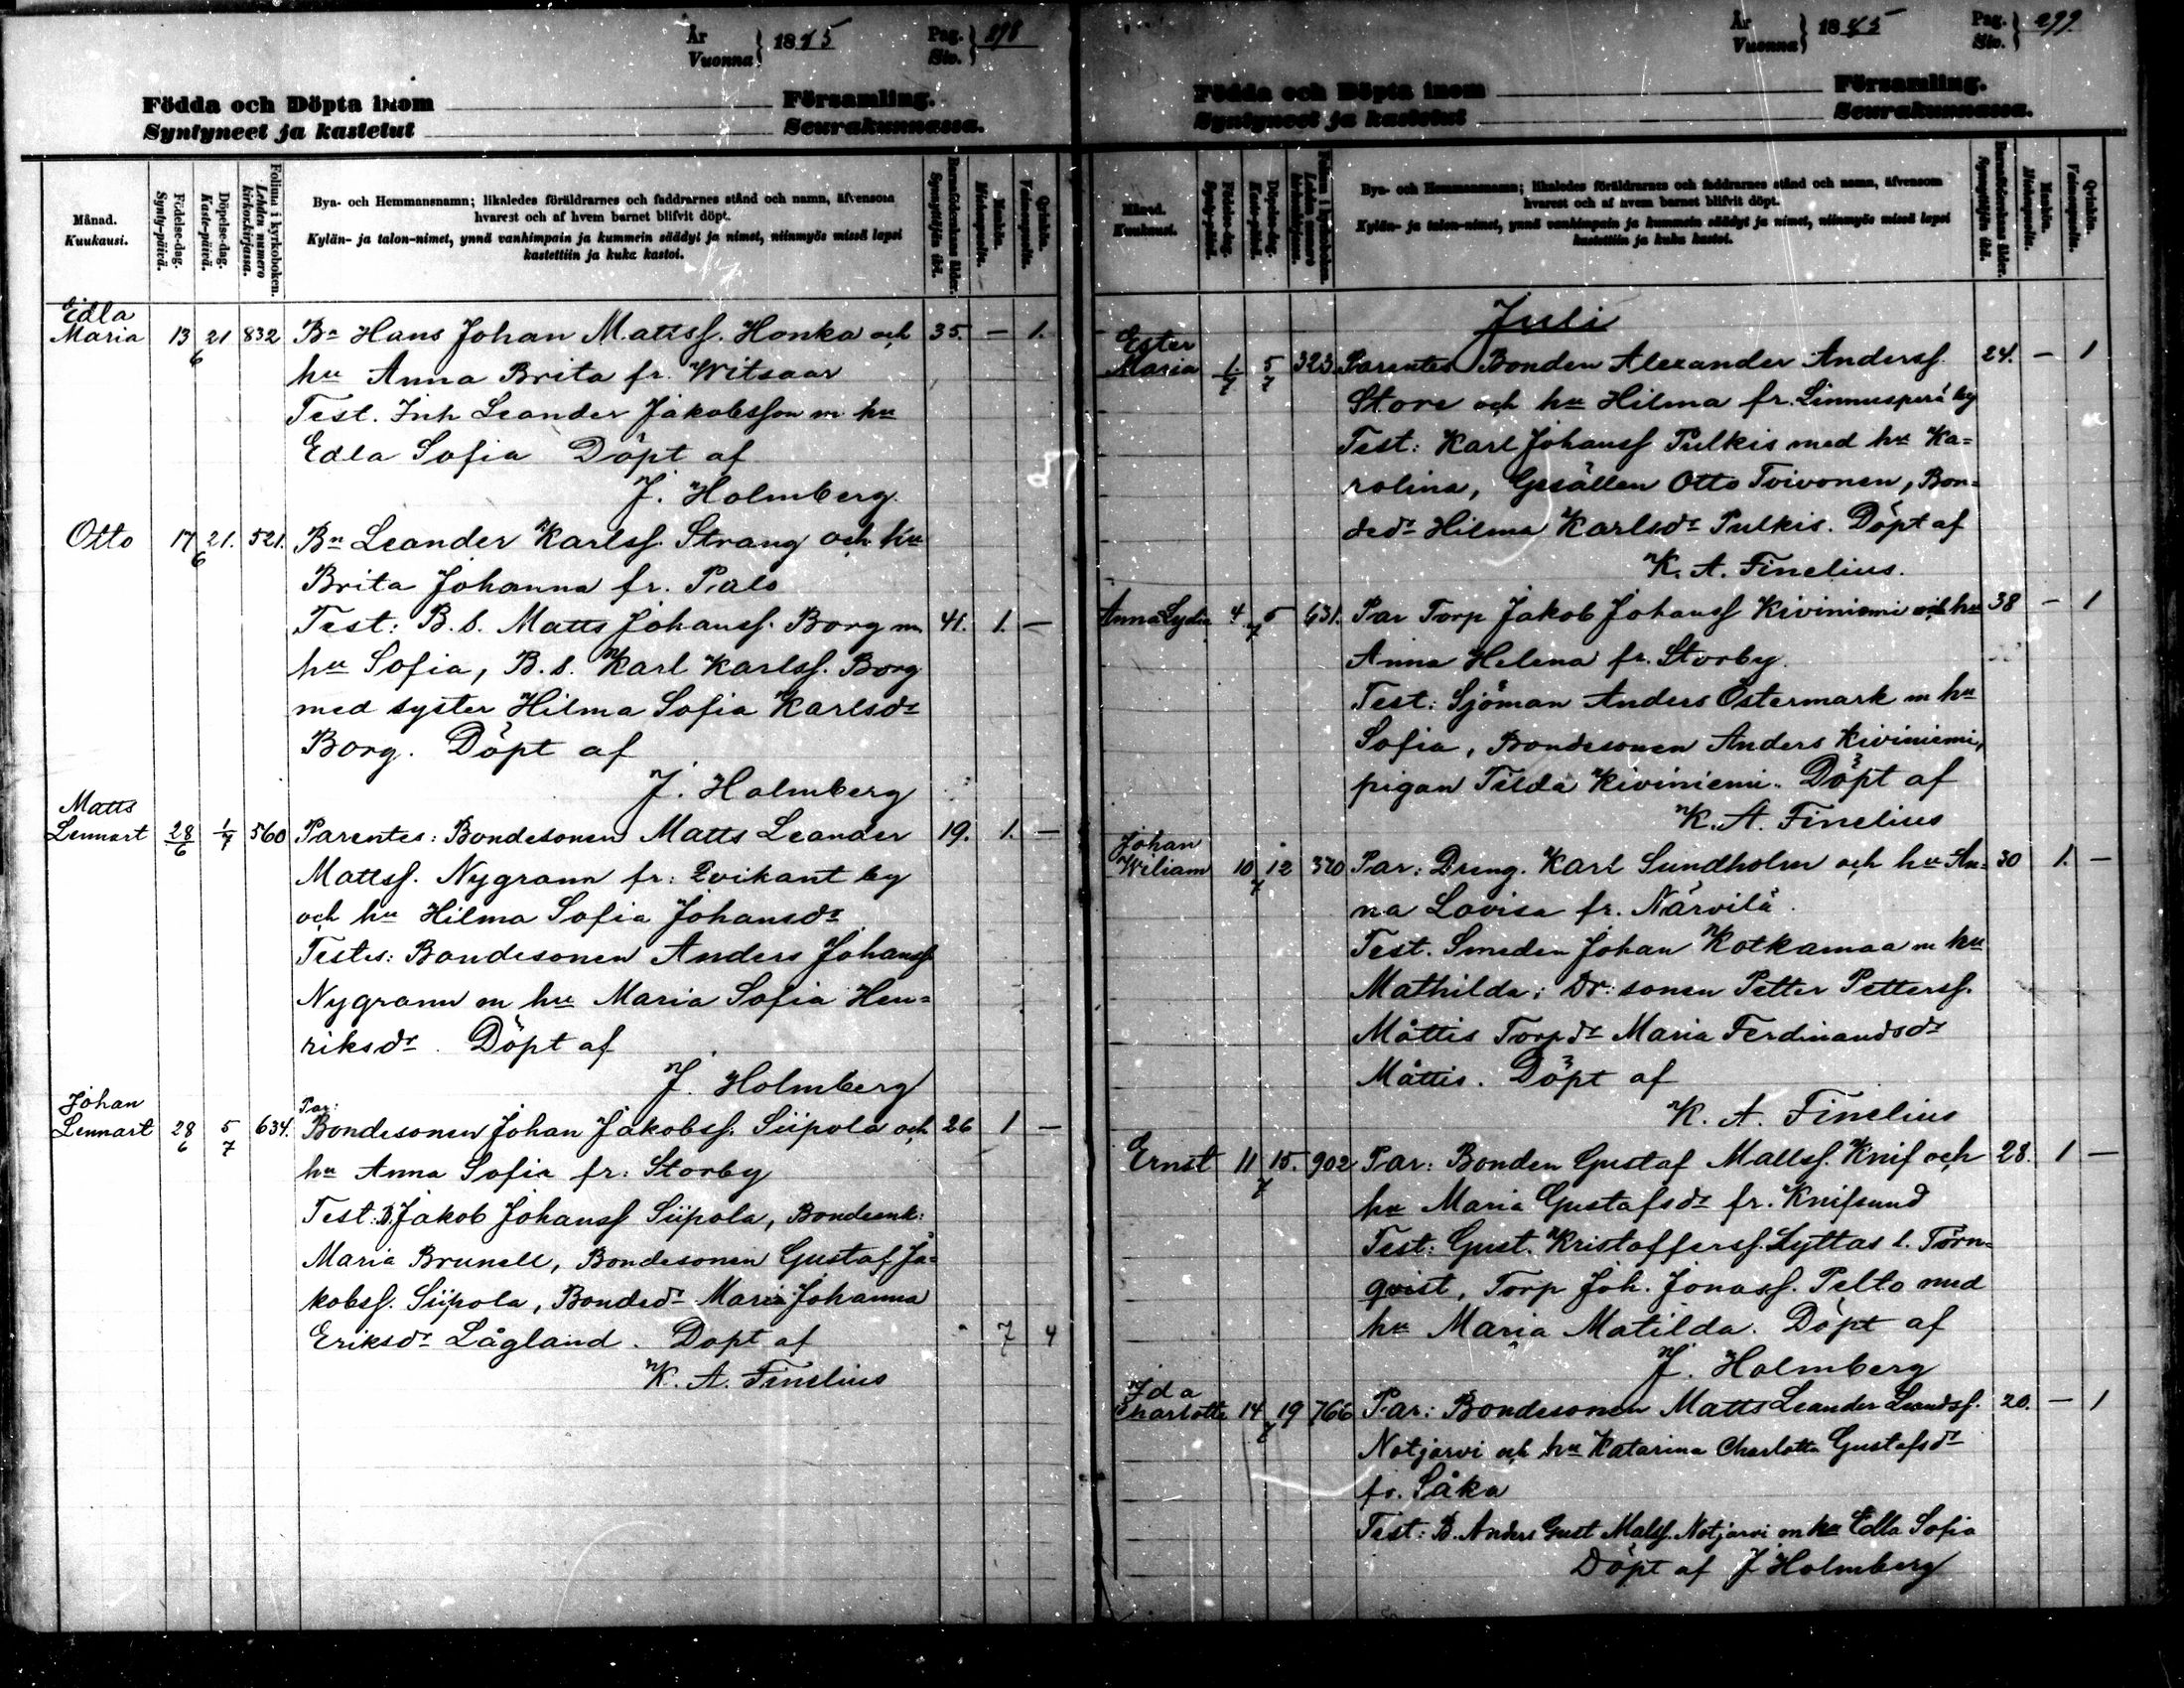 År
Vuonna } 18
Pag.
Siv. }
Födda och Döpta inom Församling.
Syntyneet ja kastetut Seurakunnassa.
Månad.
Kuukausi.
Födelse-dag.
Synty-päivä.
Döpelse-dag.
Kaste-päivä.
Folium i kyrkoboken.
Lehden numero kirkonkirjassa.
Bya- och Hemmansnamn; likaledes föräldrarnes och faddrarnes stånd och namn, äfvensom
hvarest och af hvem barnet blifvit döpt.
Kylän- ja talon-nimet, ynnä vanhimpain ja kummein säädyt ja nimet, niinmyös missä lapsi
kastettiin ja kuka kastoi.
Barnaföderskans ålder.
Synnyttäjän ikä.
Mankön.
Miehenpuolta.
Qvinkön.
Vaimonpuolta.
Edla
Maria 13/6 21 832 Bn Hans Johan Mattsf. Honka och 35. — 1.
hu Anna Brita fr. Witsaar
Test. Inh Leander Jakobsson m hu
Edla Sofia Döpt af
J. Holmberg.
Otto 17/6 21. 521. Bn Leander Karlsf. Strang och hu
Brita Johanna fr. Palo
Test: B. s. Matts Johansf. Borg m 41. 1. —
hu Sofia, B. s. Karl Karlsf. Borg
med syster Hilma Sofia Karlsdr
Borg. Döpt af
J. Holmberg
Matts
Lennart 28/6 1/7 560 Parentes: Bondesonen Matts Leander 19. 1. —
Mattsf. Nygrann fr: Qvikant by
och hu Hilma Sofia Johansdr
Testes: Bondesonen Anders Johansf
Nygrann m hu Maria Sofia Hen=
riksdr. Döpt af
J. Holmberg
Johan Par:
Lennart 28/6 5/7 634. Bondesonen Johan Jakobsf. Siipola och 26 1 —
hu Anna Sofia fr: Storby
Test: B. Jakob Johansf Siipola, Bondeenk:
Maria Brunell, Bondesonen Gustaf Ja=
kobsf. Siipola, Bondedr Maria Johanna
Eriksdr Lågland. Döpt af 7 4
K. A. Finelius
År
Vuonna } 18
Pag.
Siv. } 299.
Födda och Döpta inom Församling.
Syntyneet ja kastetut Seurakunnassa.
Månad.
Kuukausi.
Födelse-dag.
Synty-päivä.
Döpelse-dag.
Kaste-päivä.
Folium i kyrkoboken.
Lehden numero kirkonkirjassa.
Bya- och Hemmansnamn; likaledes föräldrarnes och faddrarnes stånd och namn, äfvensom
hvarest och af hvem barnet blifvit döpt.
Kylän- ja talon-nimet, ynnä vanhimpain ja kummein säädyt ja nimet, niinmyös missä lapsi
kastettiin ja kuka kastoi.
Barnaföderskans ålder.
Synnyttäjän ikä.
Mankön.
Miehenpuolta.
Qvinkön.
Vaimonpuolta.
Juli
Ester
Maria 1./7 5/7 323. Parentes Bonden Alexander Andersf. 24. — 1
Store och hu Hilma fr. Linnusperä by
Test: Karl Johansf Pulkis med hu Ka=
rolina, Gesällen Otto Toivonen, Bon=
dedr Hilma Karlsdr Pulkis. Döpt af
K. A. Finelius.
Anna Lydia 4/7 5 631. Par Torp Jakob Johansf Kiviniemi och hu 38 — 1
Anna Helena fr. Storby.
Test: Sjöman Anders Östermark m hu
Sofia, Bondesonen Anders Kiviniemi,
pigan Tilda Kiviniemi. Döpt af
K. A. Finelius
Johan
Wiliam 10/7 12 370 Par: Dreng. Karl Sundholm och hu An= 30 1. —
na Lovisa fr. Närvilä.
Test. Smeden Johan Kotkamaa m hu
Mathilda; Dr: sonen Petter Pettersf.
Måttis Torpdr Maria Ferdinandsdr
Måttis. Döpt af
K. A. Finelius
Ernst 11/7 15. 902 Par: Bonden Gustaf Mattsf. Knif och 28. 1 —
hu Maria Gustafsdr fr. Knifsund
Test: Gust. Kristoffersf. Lyttas l. Törn=
qvist, Torp Joh. Jonasf. Pelto med
hu Maria Matilda. Döpt af
J. Holmberg
Ida
Charlotta 14/7 19 766 Par: Bondesonen Matts Leander Leandsf. 20. — 1
Notjarvi och hu Katarina Charlotta Gustafsdr
fr. Såka
Test: B. Anders Gust Matsf. Notjarvi m hu Edla Sofia
Döpt af J Holmberg